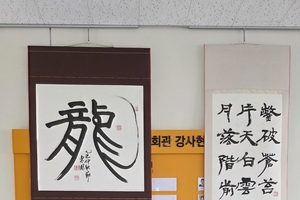 龍
회관 강사현
鑿破蒼苔
片天白雲
月落階前